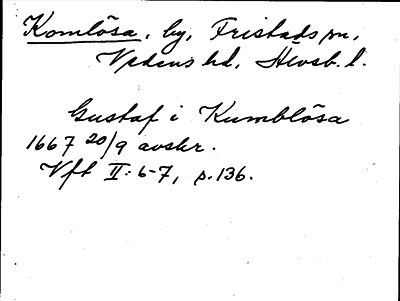 Komlösa, by, Fristads sn,
Vedens hd, Älvsb. l.
Gustaf i Kumblösa
1667 20/9 avskr.
Vft II: 6-7, p. 136.